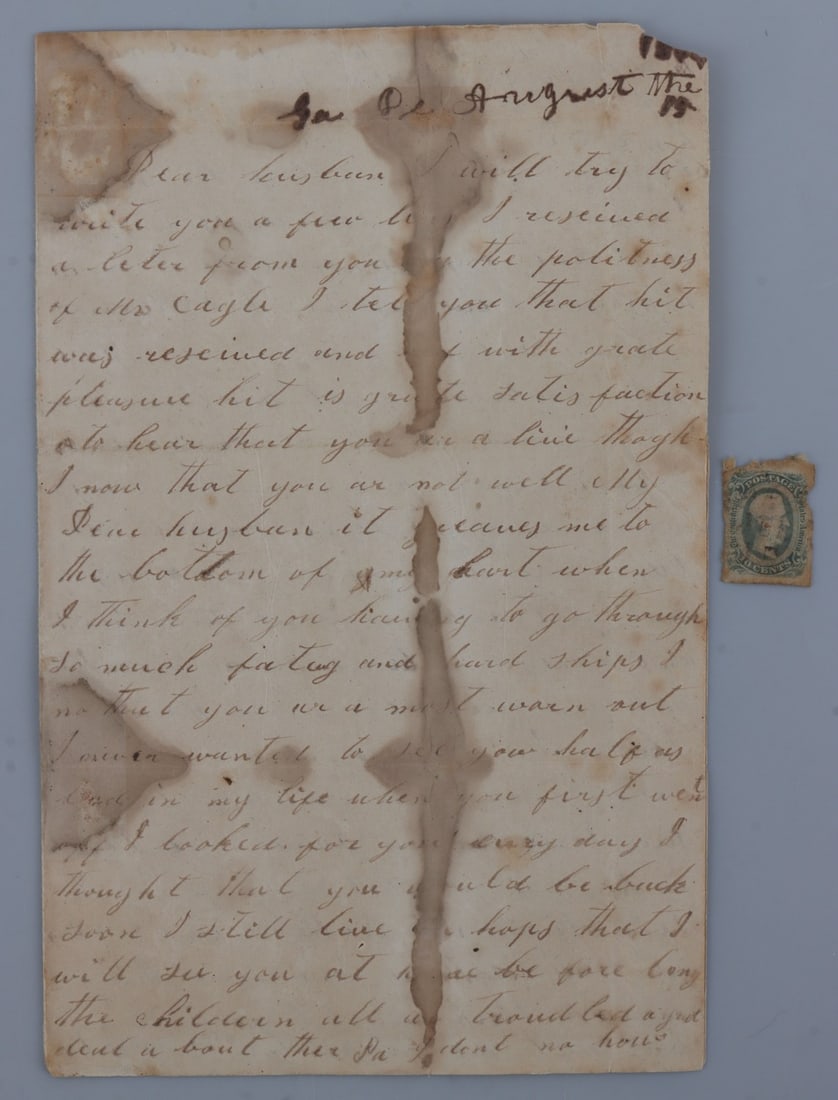 Ga August the
15
Dear husban I will try to
write you a few I reseived
a leter from you the politness
of Mr Cagle I tel you that hit
was reseived and with grate
pleasure hit is grate satis faction
to hear that you ar a live thogh
I now that you ar not well My
Dear husban it greaves me to
the bottom of my heart when
I think of you having to go through
so much fatug and hard ships I
no that you ar a most worn out
I never wanted to see you half as
bad in my life when you first went
off I looked for you evry day I
thought that you would be back
soon I still live in hops that I
will see you at home be fore long
the childern all ar troubled a grd
deal a bout ther Pa I dont no how
POSTAGE
10 CENTS